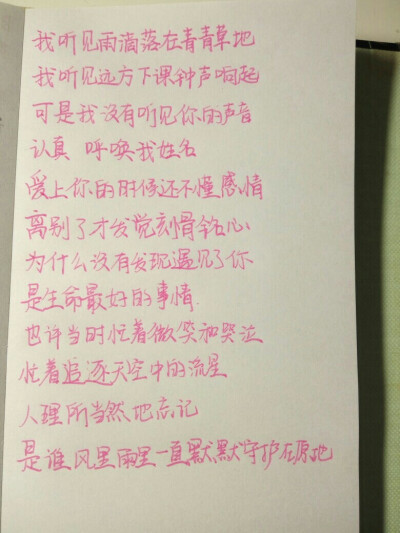 我听见雨滴落在青青草地
我听见远方下课种声响起
可是我没有听见你的声音
认真 呼唤我姓名
爱上你的时候还不懂感情
离别了才发觉刻骨铭心
为什么没有发现遇见了你
是生命最好的事情.
也许当时忙着微笑和哭泣
忙着追逐天空中的流星
人理所当然地忘记
是谁风里雨里一直默默守护在原地